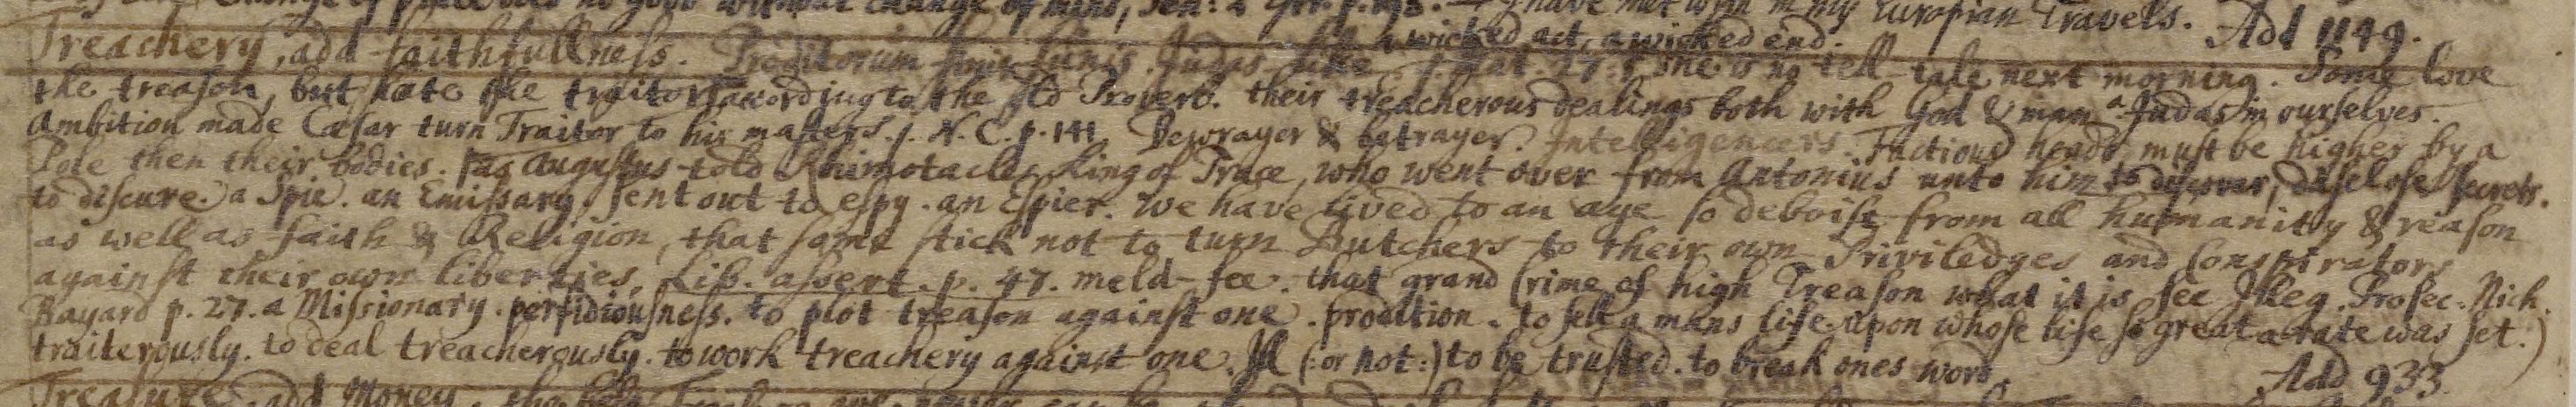 change of place does no good without change of mind, Sen: 2 p. 193. I have met with in my Europian Travels. Add 1149.
a wicked act, a wicked end.
Treachery, add faithfullness. Proditorum finis funis. Judas like. one is no tell tale next morning. Some love
the treason, but hate the traitor, according to the old Proverb. their treacherous dealings both with God & man. a Judas in ourselves.
Ambition made Cæsar turn Traitor to his masters. J. N. C. p. 141. Bewrayer & betrayer. Intelligencers. Factious heads must be higher by a
Pole then their bodies. as Augustus told Rhimotacles King of Trace, who went over from Antonius unto him. to discover, disclose secrets.
to discure. a Spie. an Emissary, sent out to espy. an Espier. We have lived to an age so deboist from all humanity & reason
as well as faith & Religion, that some stick not to turn Butchers to their own Priviledges and Conspirators
against their own liberties, Lib. assert. p. 47. meld-fee. that grand Crime of high Treason what it is see Illeg. Prosec. Nich.
Bayard p. 27. a Missionary. perfidiousness. to plot treason against one. prodition. to sell a mans life upon whose life so great a rate was set.)
traiterously. to deal treacherously. to work treachery against one. Ill (: or not :) to be trusted. to break ones word. Add 933.
Treasure, add Money.